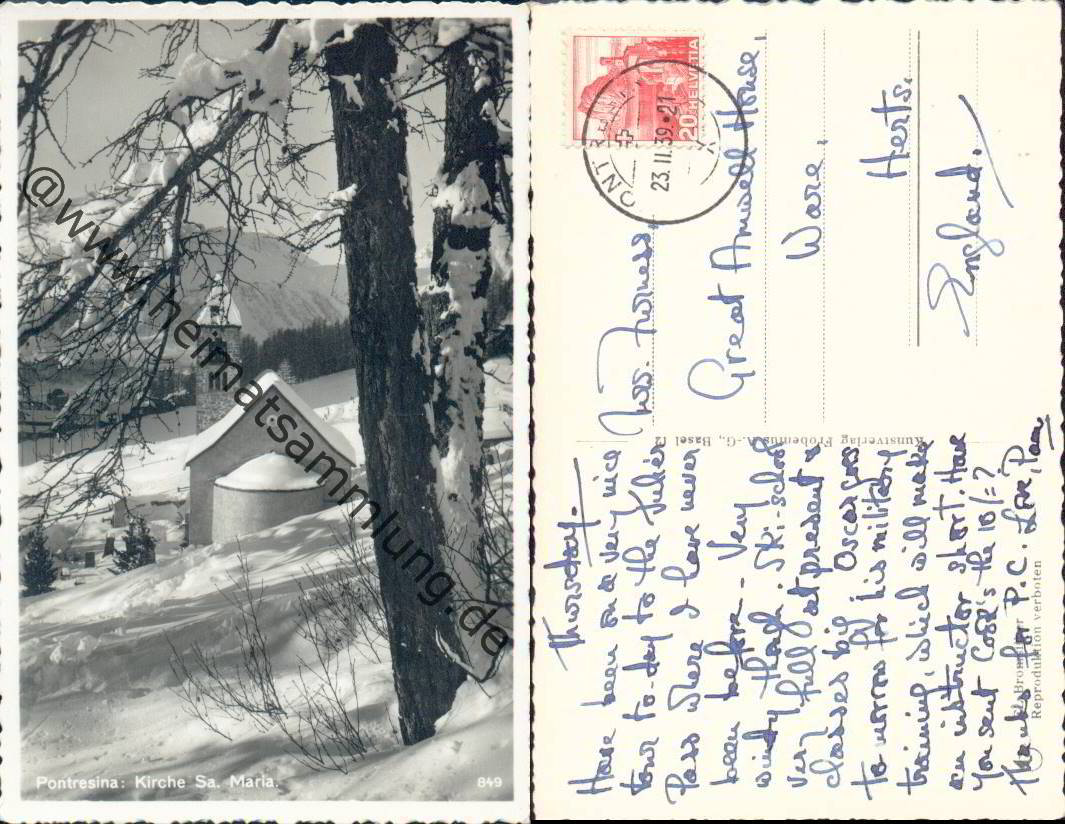 @www.heimatsammlung.de
Pontresina: Kirche Sa. Maria.
849
20 HELVETIA
23.II.39.21
Great Amwell House,
Ware,
Herts.
England.
Kunstverlag Frobenius A.-G., Basel
Reproduktion verboten
Thursday.
Have been on a very nice
tour to-day to the Julier
Pass where I have never
been before - Very
windy though. Ski-school
very full at present &
classes big. Oscar goes
to-morrow for his military
training, which will make
an instructor short. Have
you sent Cook's the 10/=?
Thanks for P.C. Love, Pam